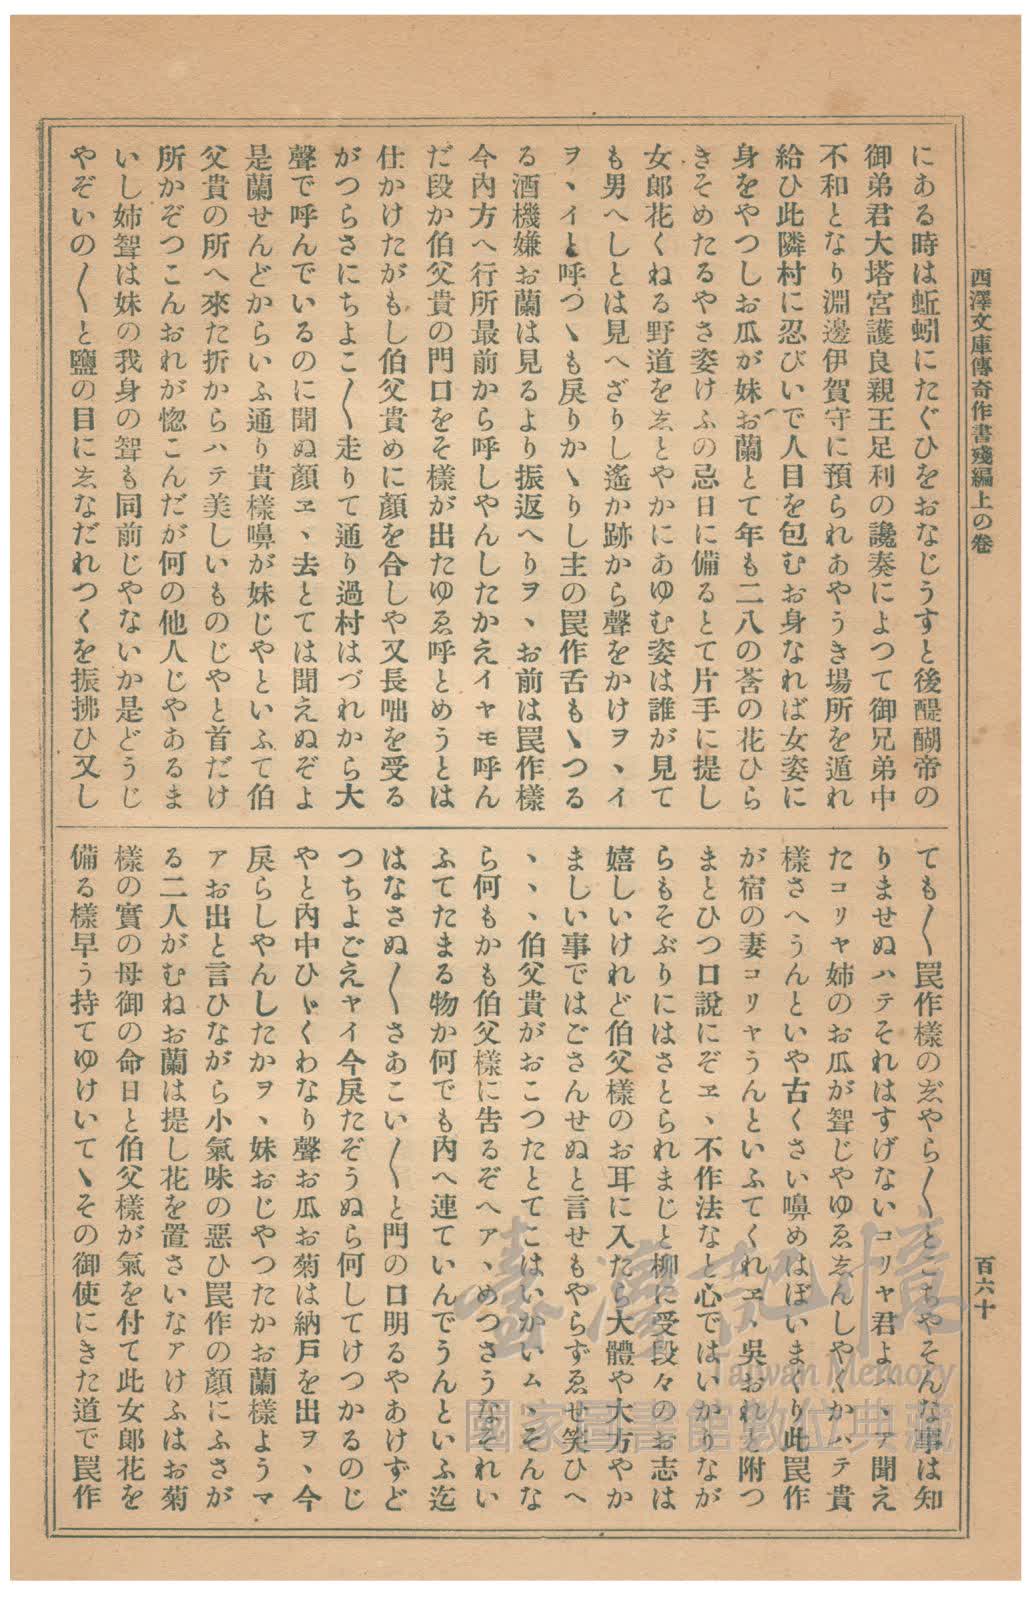 西澤文庫傳奇作書殘編上の卷
百六十
にある時は蚯蚓にたぐひをおなじうすと後醍醐帝の
御弟君大塔宮護良親王足利の讒奏によつて御兄弟中
不和となり淵邊伊賀守に預られあやうき場所を遁れ
給ひ此隣村に忍びいで人目を包むお身なれば女姿に
身をやつしお瓜が妹お蘭とて年も二八の莟の花ひら
きそめたるやさ姿けふの忌日に備るとて片手に提し
女郞花くねる野道をゑとやかにあゆむ姿は誰が見て
も男へしとは見へざりし遙か跡から聲をかけヲヽイ
ヲヽイと呼つゝも戾りかゝりし主の罠作舌もゝつる
る酒機嫌お蘭は見るより振返へりヲヽお前は罠作樣
今內方へ行所最前から呼しやんしたかえイヤモ呼ん
だ段か伯父貴の門口をそ樣が出たゆゑ呼とめうとは
仕かけたがもし伯父貴めに顏を合しや又長咄を受る
がつらさにちよこ〳〵走りて通り過村はづれから大
聲で呼んでいるのに聞ぬ顏ヱヽ去とては聞えぬぞよ
是蘭せんどからいふ通り貴樣嚊が妹じやといふて伯
父貴の所へ來た折からハテ美しいものじやと首だけ
所かぞつこんおれが惚こんだが何の他人じやあるま
いし姉聟は妹の我身の聟も同前じやないか是どうじ
やぞいの〳〵と鹽の目にゑなだれつくを振拂ひ又し
ても〳〵罠作樣のゑやら〳〵とこちやそんな事は知
りませぬハテそれはすげないコリヤ君よハヽテ聞え
たコリヤ姉のお瓜が聟じやゆゑゑんしやくかハテ貴
樣さへうんといや古くさい嚊めはぼいまくり此罠作
が宿の妻コリヤうんといふてくれヱヽ吳おれと附つ
まとひつ口說にぞヱヽ不作法なと心ではいかりなが
らもそぶりにはさとられまじと柳に受段々のお志は
嬉しいけれど伯父樣のお耳に入たら大體や大方やか
ましい事ではござんせぬと言せもやらずゑせ笑ひへ
ヽヽヽ伯父貴がおこつたとてこはいかいムヽそんな
ら何もかも伯父樣に吿るぞヘアヽめつさうなそれい
ふてたまる物か何でも內へ連ていんでうんといふ迄
はなさぬ〳〵さあこい〳〵と門の口明るやあけずど
つちよごえャイ今戾たぞうぬら何してけつかるのじ
やと內中ひゞくわなり聲お瓜お菊は納戶を出ヲヽ今
戾らしやんしたかヲヽ妹おじやつたかお蘭樣ようマ
アお出と言ひながら小氣味の惡ひ罠作の顏にふさが
る二人がむねお蘭は提し花を置さいなァけふはお菊
樣の實の母御の命日と伯父樣が氣を付て此女郞花を
備る樣早う持てゆけいてゝその御使にきた道で罠作
臺灣記憶
Taiwan Memory
國家圖書館數位典藏